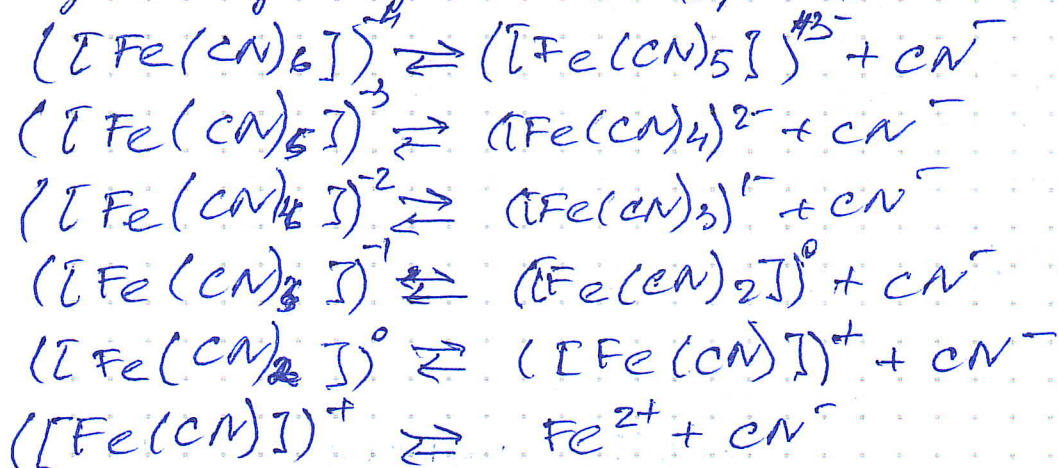 ([Fe(CN)6])⁻⁴ ⇄ ([Fe(CN)5])³⁻ + CN⁻
([Fe(CN)5])⁻³ ⇄ ([Fe(CN)4)²⁻ + CN⁻
([Fe(CN)4])⁻² ⇄ ([Fe(CN)3)¹⁻ + CN⁻
([Fe(CN)3])⁻¹ ⇄ ([Fe(CN)2])⁰ + CN⁻
([Fe(CN)2])⁰ ⇄ ([Fe(CN)])⁺ + CN⁻
([Fe(CN)])⁺ ⇄ Fe²⁺ + CN⁻